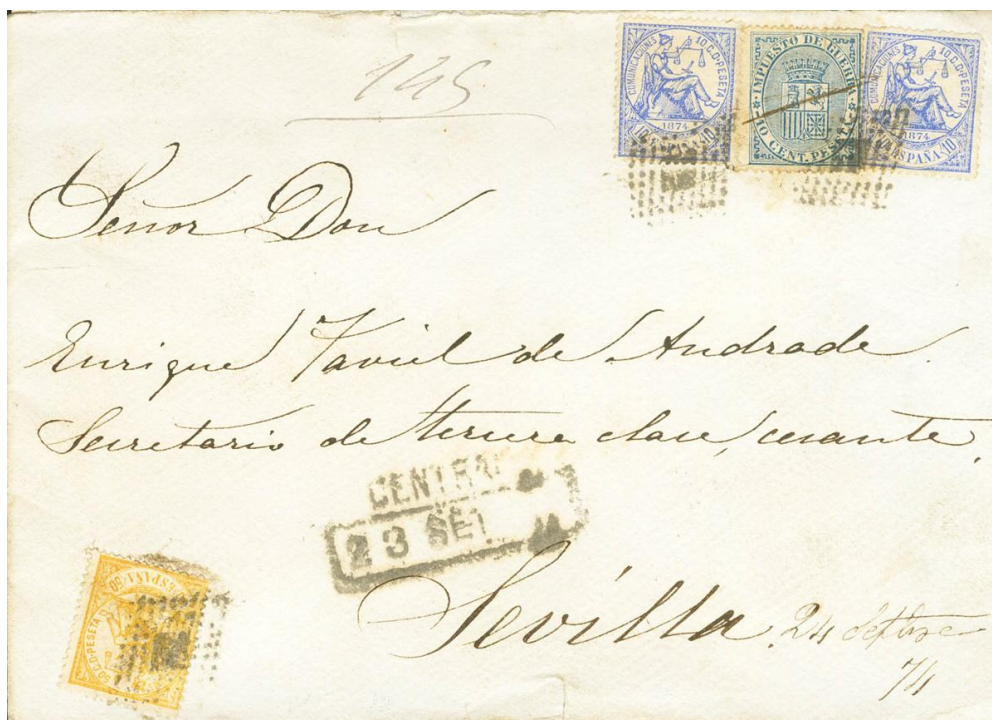 145
COMUNICACIONES 10 C.D PESETA
1874
10 10
IMPUESTO DE GUERRA
10 CENT. PESETA
COMUNICACIONES 10 C.D PESETA
1874
ESPAÑA. 10
Señor Don
Enrique Taviel de Andrade.
Secretario de tercera clase, cesante.
CENTRAL
23 SET 74
Sevilla. 24 Setbre
74
50 C.D PESETA
ESPAÑA. 50